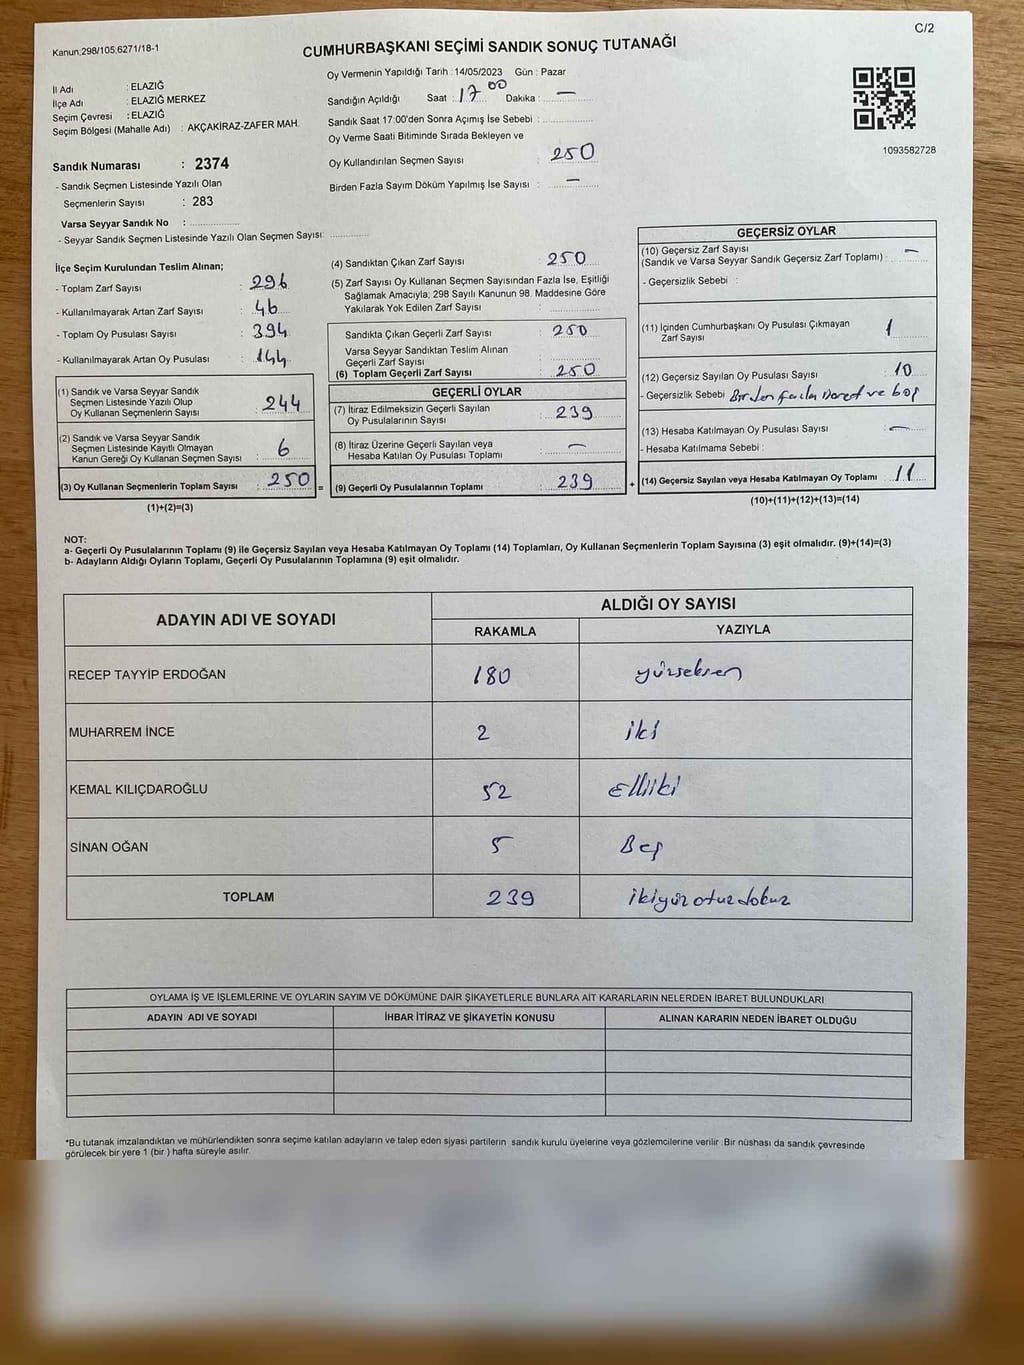 C/2
Kanun:298/105,6271/18-1
CUMHURBAŞKANI SEÇİMİ SANDIK SONUÇ TUTANAĞI
İl Adı : ELAZIĞ
İlçe Adı : ELAZIĞ MERKEZ
Seçim Çevresi : ELAZIĞ
Seçim Bölgesi (Mahalle Adı) : AKÇAKİRAZ-ZAFER MAH.
Sandık Numarası : 2374
- Sandık Seçmen Listesinde Yazılı Olan
Seçmenlerin Sayısı : 283
Varsa Seyyar Sandık No :
- Seyyar Sandık Seçmen Listesinde Yazılı Olan Seçmen Sayısı:
Oy Vermenin Yapıldığı Tarih : 14/05/2023 Gün : Pazar
Sandığın Açıldığı Saat : 17 00 Dakika : —
Sandık Saat 17:00'den Sonra Açımış İse Sebebi :
Oy Verme Saati Bitiminde Sırada Bekleyen ve
Oy Kullandırılan Seçmen Sayısı : 250
Birden Fazla Sayım Döküm Yapılmış İse Sayısı : —
1093582728
İlçe Seçim Kurulundan Teslim Alınan;
- Toplam Zarf Sayısı : 296
- Kullanılmayarak Artan Zarf Sayısı : 46
- Toplam Oy Pusulası Sayısı : 394
- Kullanılmayarak Artan Oy Pusulası : 144
(1) Sandık ve Varsa Seyyar Sandık
Seçmen Listesinde Yazılı Olup
Oy Kullanan Seçmenlerin Sayısı : 244
(2) Sandık ve Varsa Seyyar Sandık
Seçmen Listesinde Kayıtlı Olmayan
Kanun Gereği Oy Kullanan Seçmen Sayısı : 6
(3) Oy Kullanan Seçmenlerin Toplam Sayısı : 250 =
(1)+(2)=(3)
(4) Sandıktan Çıkan Zarf Sayısı : 250
(5) Zarf Sayısı Oy Kullanan Seçmen Sayısından Fazla İse, Eşitliği
Sağlamak Amacıyla; 298 Sayılı Kanunun 98. Maddesine Göre
Yakılarak Yok Edilen Zarf Sayısı :
Sandıkta Çıkan Geçerli Zarf Sayısı : 250
Varsa Seyyar Sandıktan Teslim Alınan
Geçerli Zarf Sayısı :
(6) Toplam Geçerli Zarf Sayısı : 250
GEÇERLİ OYLAR
(7) İtiraz Edilmeksizin Geçerli Sayılan
Oy Pusulalarının Sayısı : 239
(8) İtiraz Üzerine Geçerli Sayılan veya
Hesaba Katılan Oy Pusulası Toplamı : —
(9) Geçerli Oy Pusulalarının Toplamı : 239 +
GEÇERSİZ OYLAR
(10) Geçersiz Zarf Sayısı
(Sandık ve Varsa Seyyar Sandık Geçersiz Zarf Toplamı) : —
- Geçersizlik Sebebi :
(11) İçinden Cumhurbaşkanı Oy Pusulası Çıkmayan
Zarf Sayısı : 1
(12) Geçersiz Sayılan Oy Pusulası Sayısı : 10
- Geçersizlik Sebebi Birden fazla Davet ve boş
(13) Hesaba Katılmayan Oy Pusulası Sayısı : —
- Hesaba Katılmama Sebebi :
(14) Geçersiz Sayılan veya Hesaba Katılmayan Oy Toplamı : 11
(10)+(11)+(12)+(13)=(14)
NOT:
a- Geçerli Oy Pusulalarının Toplamı (9) ile Geçersiz Sayılan veya Hesaba Katılmayan Oy Toplamı (14) Toplamları, Oy Kullanan Seçmenlerin Toplam Sayısına (3) eşit olmalıdır. (9)+(14)=(3)
b- Adayların Aldığı Oyların Toplamı, Geçerli Oy Pusulalarının Toplamına (9) eşit olmalıdır.
ADAYIN ADI VE SOYADI
ALDIĞI OY SAYISI
RAKAMLA YAZIYLA
RECEP TAYYİP ERDOĞAN 180 yürseksen
MUHARREM İNCE 2 iki
KEMAL KILIÇDAROĞLU 52 Elliiki
SİNAN OĞAN 5 Beş
TOPLAM 239 ikiyüzotuzdokuz
OYLAMA İŞ VE İŞLEMLERİNE VE OYLARIN SAYIM VE DÖKÜMÜNE DAİR ŞİKAYETLERLE BUNLARA AİT KARARLARIN NELERDEN İBARET BULUNDUKLARI
ADAYIN ADI VE SOYADI İHBAR İTİRAZ VE ŞİKAYETİN KONUSU ALINAN KARARIN NEDEN İBARET OLDUĞU
*Bu tutanak imzalandıktan ve mühürlendikten sonra seçime katılan adayların ve talep eden siyasi partilerin sandık kurulu üyelerine veya gözlemcilerine verilir .Bir nüshası da sandık çevresinde
görülecek bir yere 1 (bir ) hafta süreyle asılır.